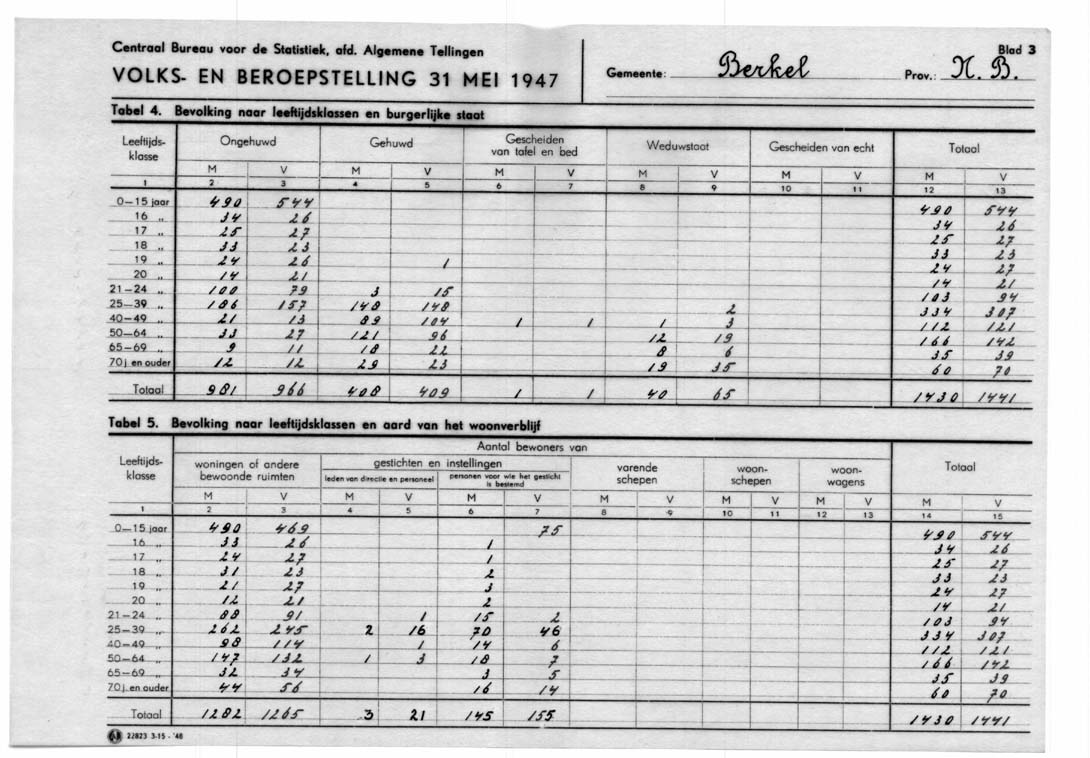 Centraal Bureau voor de Statistiek, afd. Algemene Tellingen
VOLKS- EN BEROEPSTELLING 31 MEI 1947
Gemeente: Berkel
Blad 3
Prov.: N. B.
Tabel 4. Bevolking naar leeftijdsklassen en burgerlijke staat
Leeftijds-klasse Ongehuwd Gehuwd Gescheiden van tafel en bed Weduwstaat Gescheiden van echt Totaal
M V M V M V M V M V M V
1 2 3 4 5 6 7 8 9 10 11 12 13
0—15 jaar 490 544 490 544
16 „ 34 26 34 26
17 „ 25 27 25 27
18 „ 33 23 33 23
19 „ 24 26 1 24 27
20 „ 14 21 14 21
21—24 „ 100 79 3 15 103 94
25—39 „ 186 157 148 148 2 334 307
40—49 „ 21 13 89 104 1 1 1 3 112 121
50—64 „ 33 27 121 96 12 19 166 142
65—69 „ 9 11 18 22 8 6 35 39
70 j. en ouder 12 12 29 23 19 35 60 70
Totaal 981 966 408 409 1 1 40 65 1430 1441
Tabel 5. Bevolking naar leeftijdsklassen en aard van het woonverblijf
Aantal bewoners van
Leeftijds-klasse woningen of andere bewoonde ruimten gestichten en instellingen varende schepen woon-schepen woon-wagens Totaal
leden van directie en personeel personen voor wie het gesticht is bestemd
M V M V M V M V M V M V M V
1 2 3 4 5 6 7 8 9 10 11 12 13 14 15
0—15 jaar 490 469 75 490 544
16 „ 33 26 1 34 26
17 „ 24 27 1 25 27
18 „ 31 23 2 33 23
19 „ 21 27 3 24 27
20 „ 12 21 2 14 21
21—24 „ 88 91 1 15 2 103 94
25—39 „ 262 245 2 16 70 46 334 307
40—49 „ 98 114 1 14 6 112 121
50—64 „ 147 132 1 3 18 7 166 142
65—69 „ 32 34 3 5 35 39
70 j. en ouder 44 56 16 14 60 70
Totaal 1282 1265 3 21 145 155 1430 1441
22823 3-15 - '48